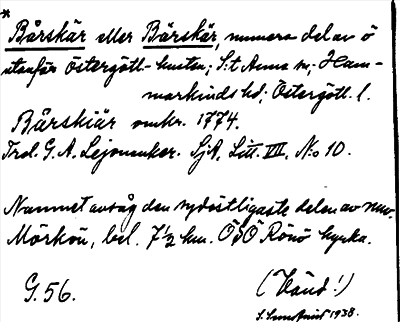 *
Bårskär eller Bärskär, numera del av ö
utanför Östergötl-kusten; S:t Anna sn; Ham-
markinds hd; Östergötl. l.
Bårskiär omkr. 1774.
Trol. G. A. Lejonanker. SjA, Litt. VII, N:o 10.
Namnet avsåg den sydöstligaste delen av nuv.
Mörkön, bel. 7½ km. ÖSÖ Rönö kyrka.
G. 56. (Vänd!)
S. 1938.